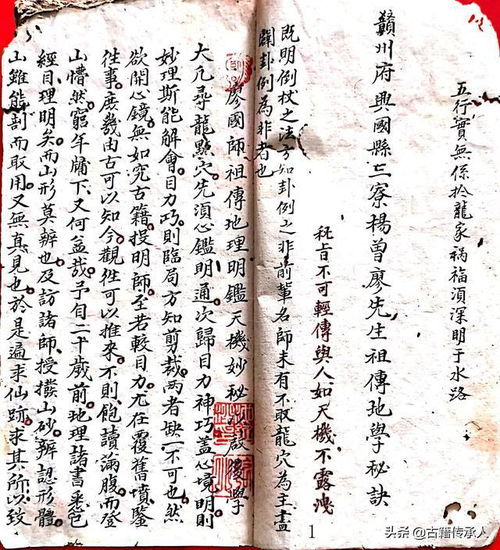 五行實無係於龍家禍福須深明于水洛
贛州府興國縣三寮楊曾廖先生祖傳地學秘訣
秘旨不可輕傳與人如天機不露洩
既明倒杖之法方知卦例之非前輩名師未有不取龍穴為主盡
闢卦例為非者也
廖國師祖傳地理明鑑天機妙秘
學
大凡尋龍點穴先須心鑑明通次歸目力神巧蓋心境明則
妙理斯能解會目力巧則臨局方知剪裁兩者缺一不可也然
欲開心鏡無如究古籍授明師至若較目力尤在覆舊墳鑒
往事庶幾由古可以知今觀往可以推來不則飽讀滿腹而登
山懵然窮年牖下又何益哉予自二十歲前地理諸書柰笆
經目理明矣而山形莫辨也及訪諸師授撥山砂辨認形體
山雖能割而取用又無真見也於是遍求仙跡求其所以致
1
头条 @古籍传承人